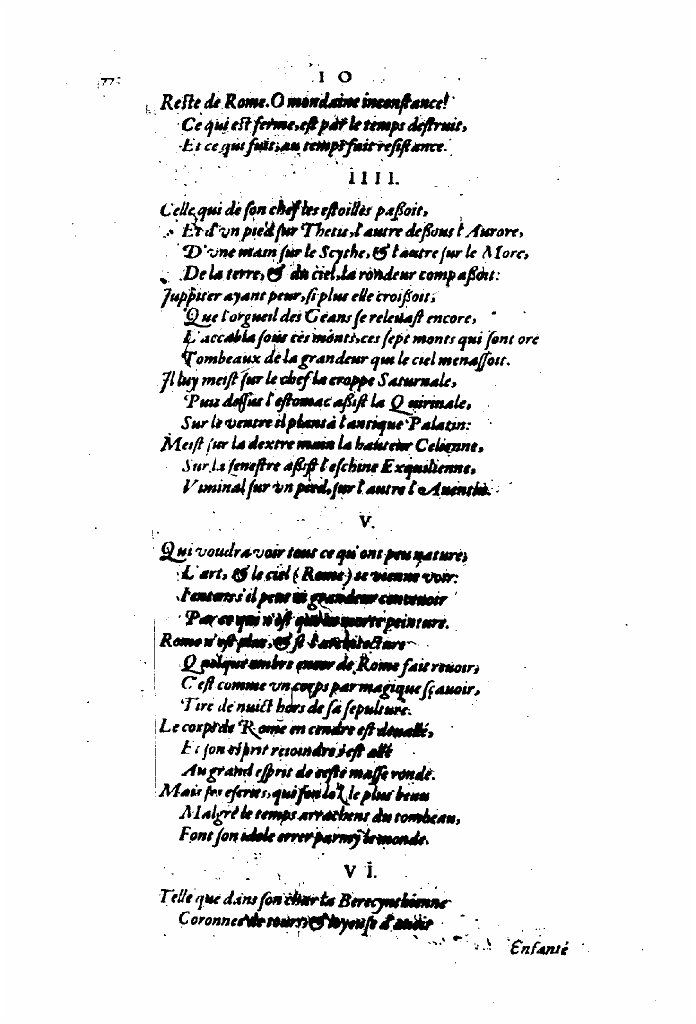 10
Reste de Rome. O mondaine inconstance!
Ce qui est ferme, est par le temps destruit,
Et ce qui fuit, au temps fait resistance.
IIII.
Celle qui de son chef les estoilles paßoit,
Et d'vn pied sur Thetis, l'autre deßous l'Aurore,
D'vne main sur le Scythe, & l'autre sur le More,
De la terre, & du ciel, la rondeur compaßoit:
Juppiter ayant peur, si plus elle croißoit,
Que l'orgueil des Geans se releuast encore,
L'accabla sous ces monts, ces sept monts qui sont ore
Tombeaux de la grandeur qui le ciel menassoit.
Il luy meist sur le chef la croppe Saturnale,
Puis dessus l'estomac aßist la Quirinale,
Sur le ventre il planta l'antique Palatin:
Meist sur la dextre main la hauteur Celienne,
Sur la senestre aßist l'eschine Exquilienne,
Viminal sur vn pied, sur l'autre l'Auentin.
V.
Qui voudra voir tout ce qu'ont peu nature,
L'art, & le ciel (Rome) te vienne voir:
J'entens s'il peut ta grandeur conceuoir
Par ce qui n'est que ta morte peinture.
Rome n'est plus, & si l'architecture
Quelque umbre encor de Rome fait reuoir,
C'est comme vn corps par magique sçauoir,
Tiré de nuict hors de sa sepulture.
Le corps de Rome en cendre est deuallé,
Et son esprit reioindre s'est allé
Au grand esprit de ceste masse ronde.
Mais ses escrits, qui son loz le plus beau
Malgré le temps arrachent du tombeau,
Font son idole errer parmy le monde.
VI.
Telle que dans son char la Berecynthienne
Coronnee de tours, & ioyeuse d'auoir
Enfanté